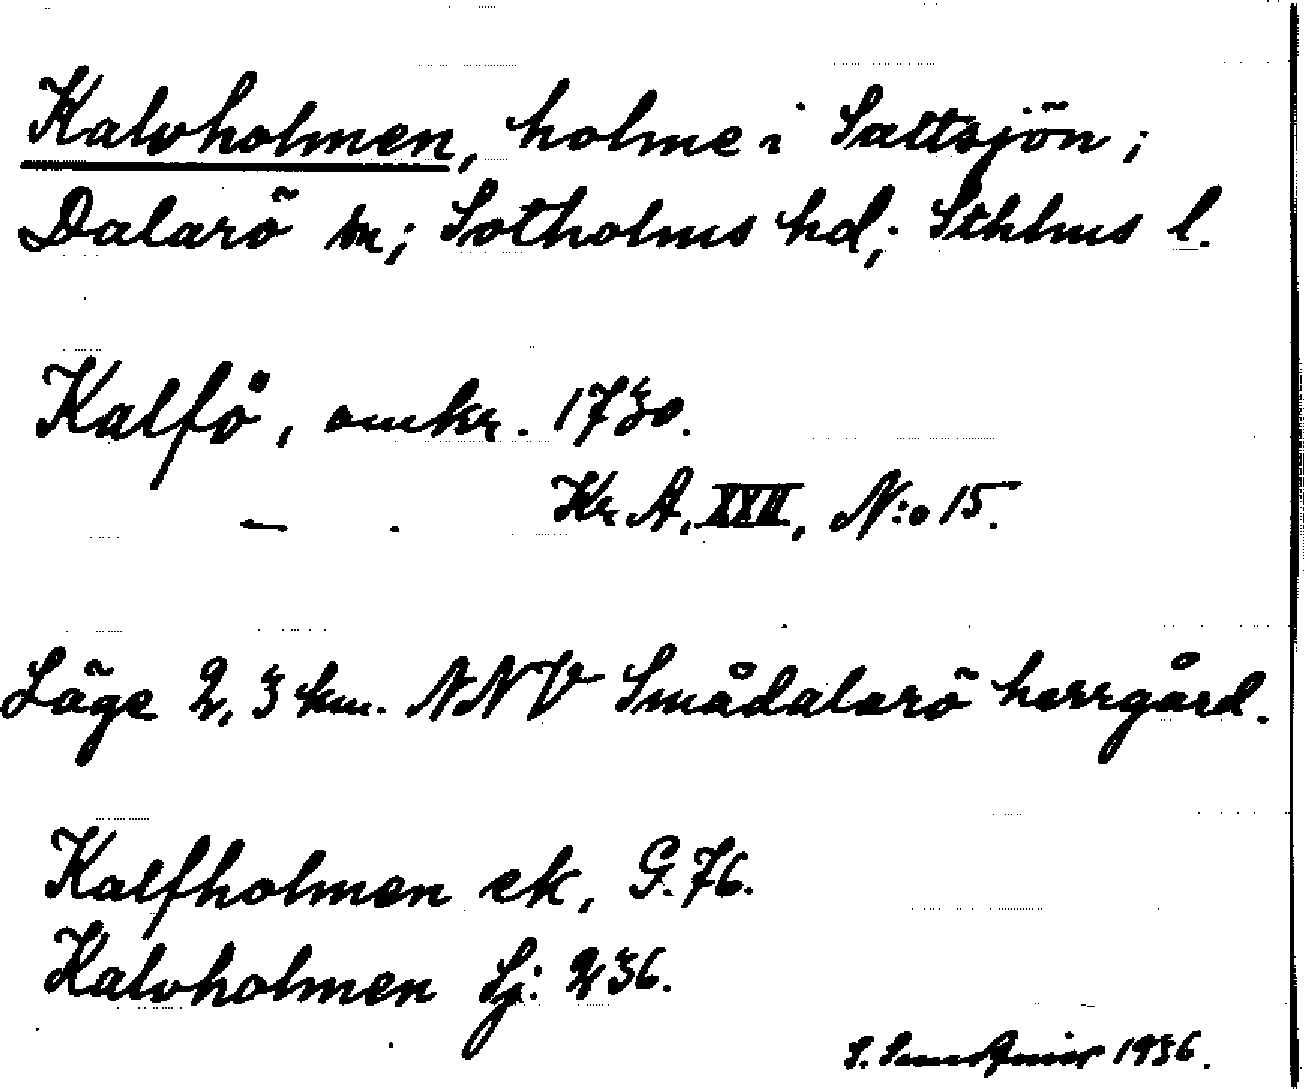 Kalvholmen, holme i Saltsjön;
Dalarö sn; Sotholms hd; Sthlms l.
Kalfö, omkr. 1730.
— . Kr A. XXII, N:o 15.
Läge 2,3 km. NNV Smådalarö herrgård.
Kalfholmen ek, G. 76.
Kalvholmen Sj: 236.
S. 1936.